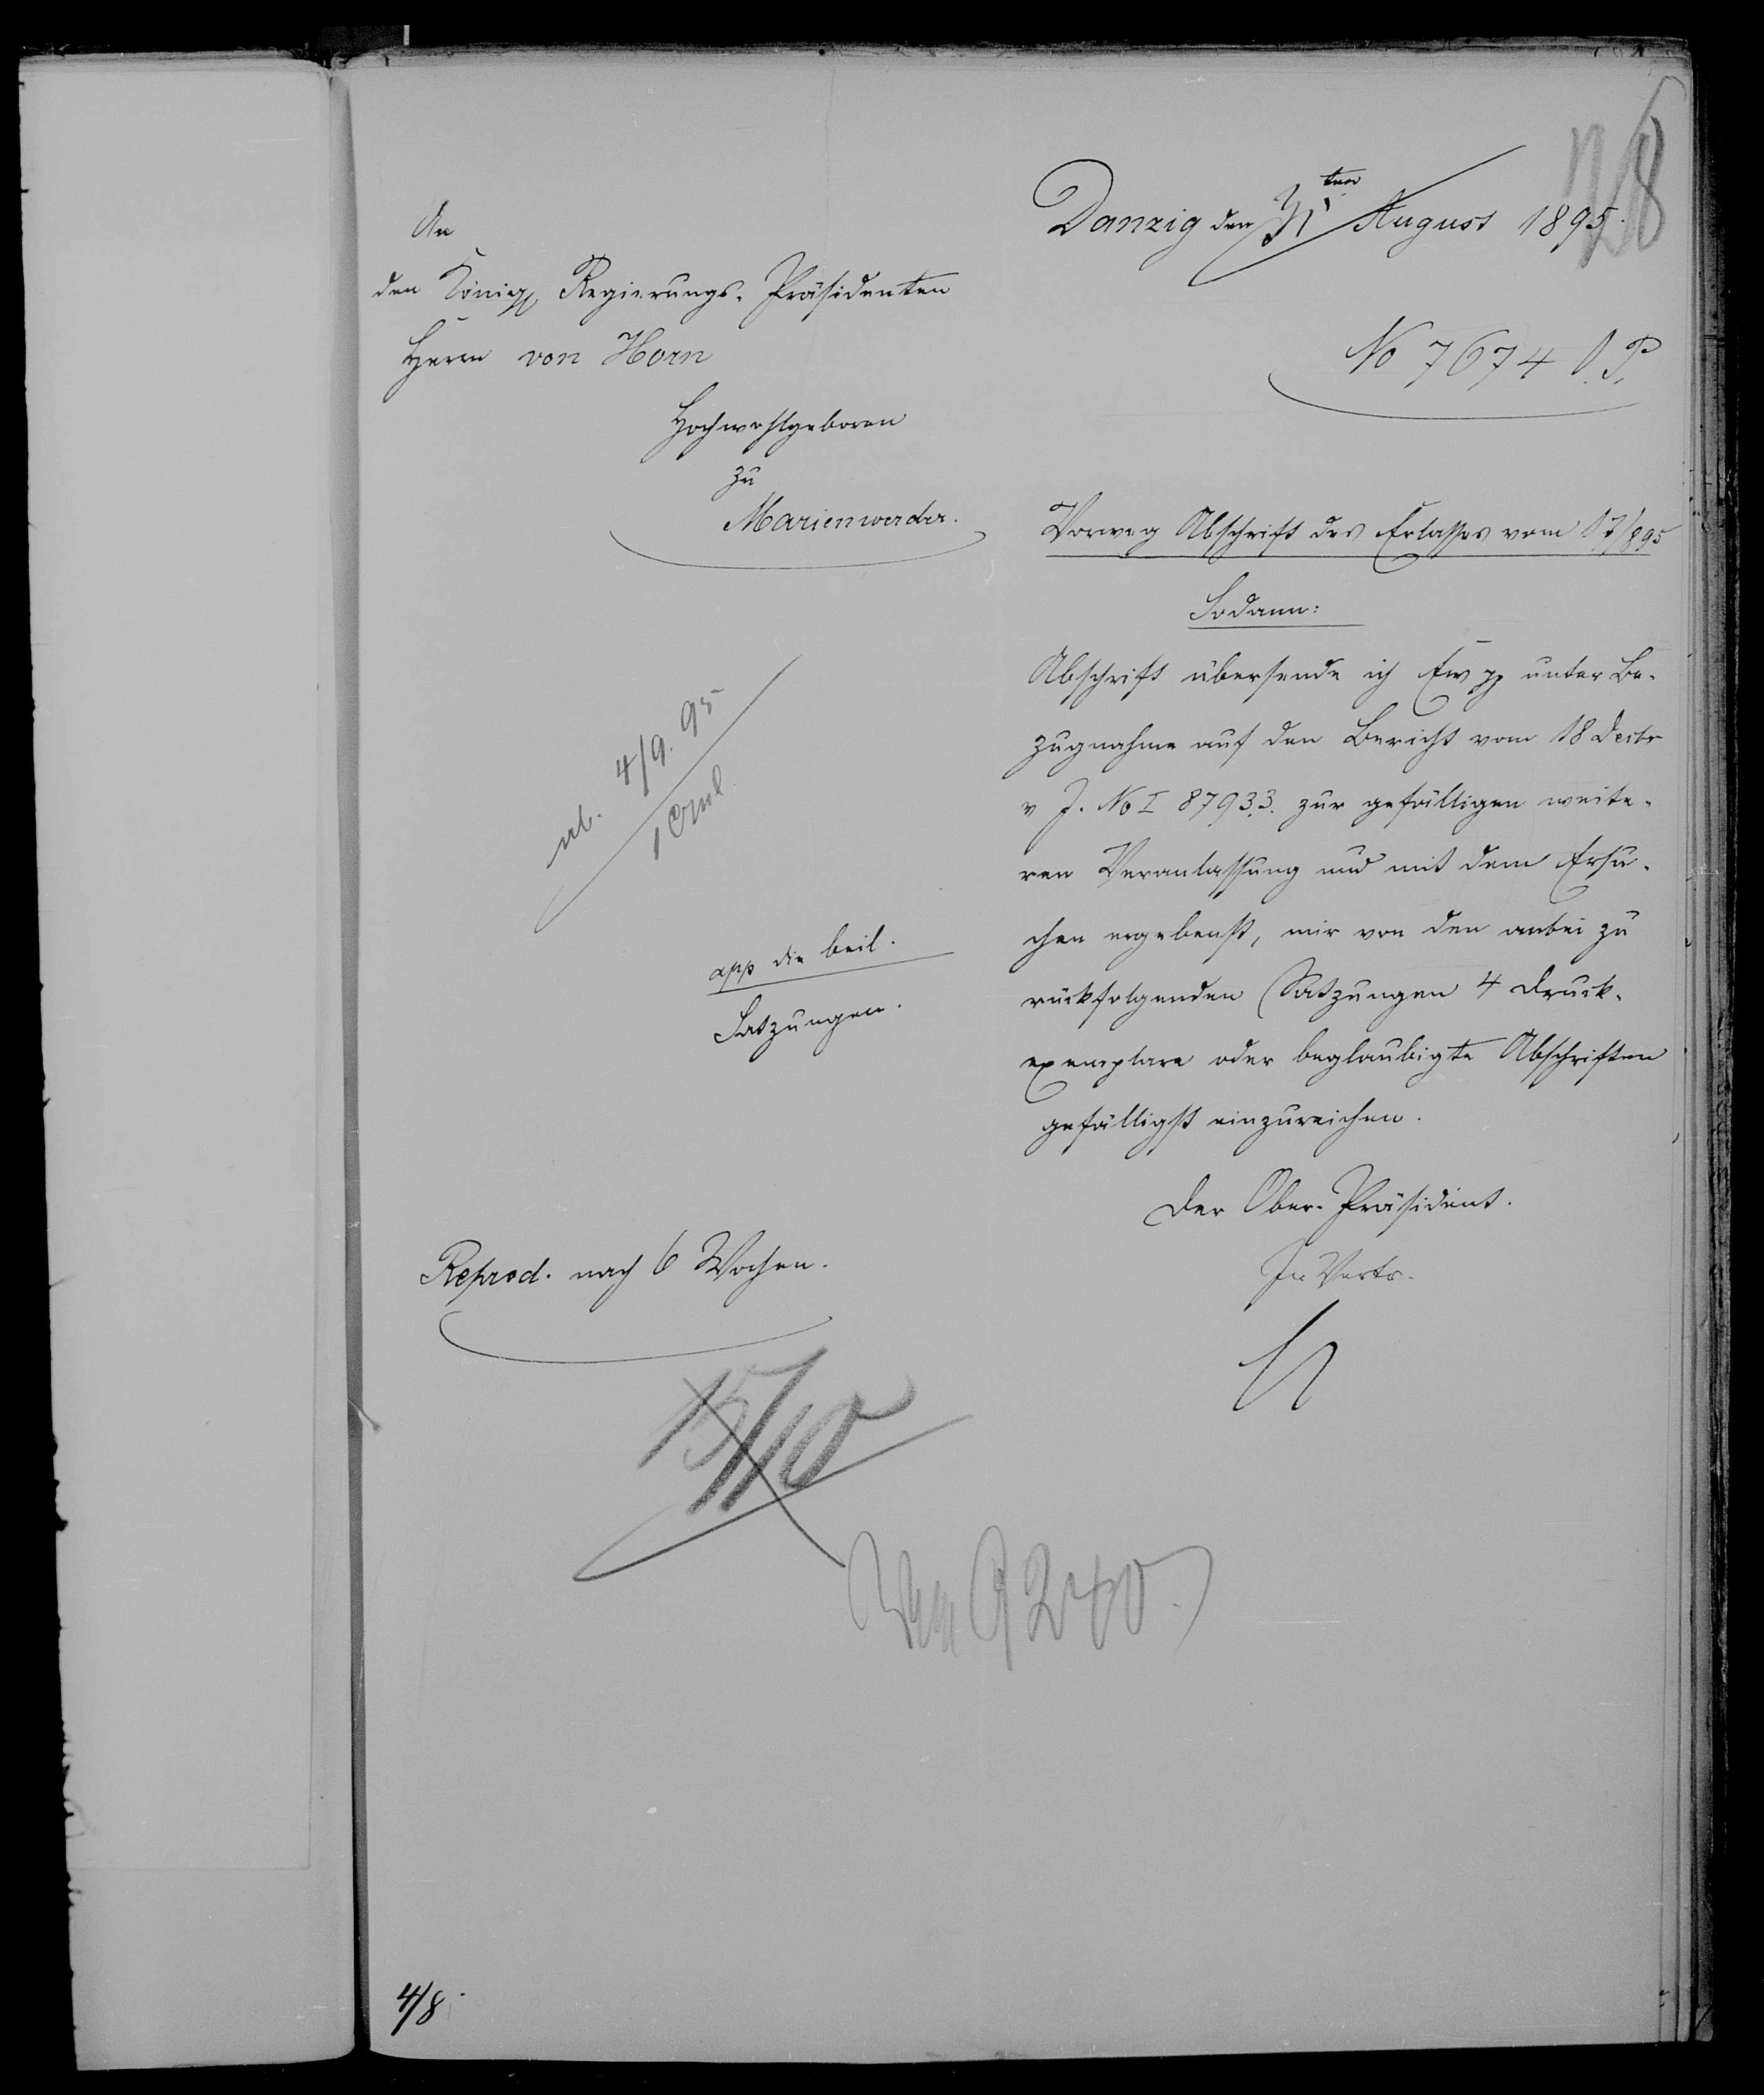 Danzig den 31ten August 1895.
An
den Königl Regierungs-Präsidenten
Herrn von Horn
Hochwohlgeboren
zu
Marienwerder.
No 7674 O.P.
Vorweg Abschrift des Erlasses vom 17/8 95
Sodann:
Abschrift übersende ich Ew pp unter Be-
zugnahme auf den Bericht vom 18 Decbr
v J. No I 8793.3. zur gefälligen weite-
ren Veranlassung und mit dem Ersu-
chen ergebenst, mir von den anbei zu
rückfolgenden Satzungen 4 Druck-
exemplare oder beglaubigte Abschriften
gefälligst einzureichen.
Der Ober-Präsident.
In Vertr.
4/9. 95
app die beil.
Satzungen.
Reprod. nach 6 Wochen.
15/10
9240.
4/8.